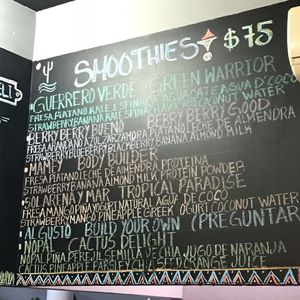 SMOOTHIES $75
GUERRERO VERDE GREEN WARRIOR
FRESA PLATANO KALE ESPINACA AGUACATE AGUA D'COCO
STRAWBERRY BANANA KALE SPINACH AVOCADO COCONUT WATER
BERRY BERRY BUENO BERRY BERRY GOOD
FRESA ARANDANO AZUL ZARZAMORA PLATANO LECHE D'ALMENDRA
STRAWBERRY BLUEBERRY BLACKBERRY BANANA ALMOND MILK
MAMEY BODY BUILDER
FRESA PLATANO LECHE DE ALMENDRA PROTEINA
STRAWBERRY BANANA ALMOND MILK PROTEIN POWDER
SOL ARENA Y MAR TROPICAL PARADISE
FRESA MANGO PINA YOGURT NATURAL AGUA DE COCO
STRAWBERRY MANGO PINEAPPLE GREEK YOGURT COCONUT WATER
AL GUSTO BUILD YOUR OWN (PREGUNTAR
NOPAL CACTUS DELIGHT
NOPAL PINA PEREJIL SEMILLA DE CHIA JUGO DE NARANJA
CACTUS PINEAPPLE PARSLEY CHIA SEED ORANGE JUICE